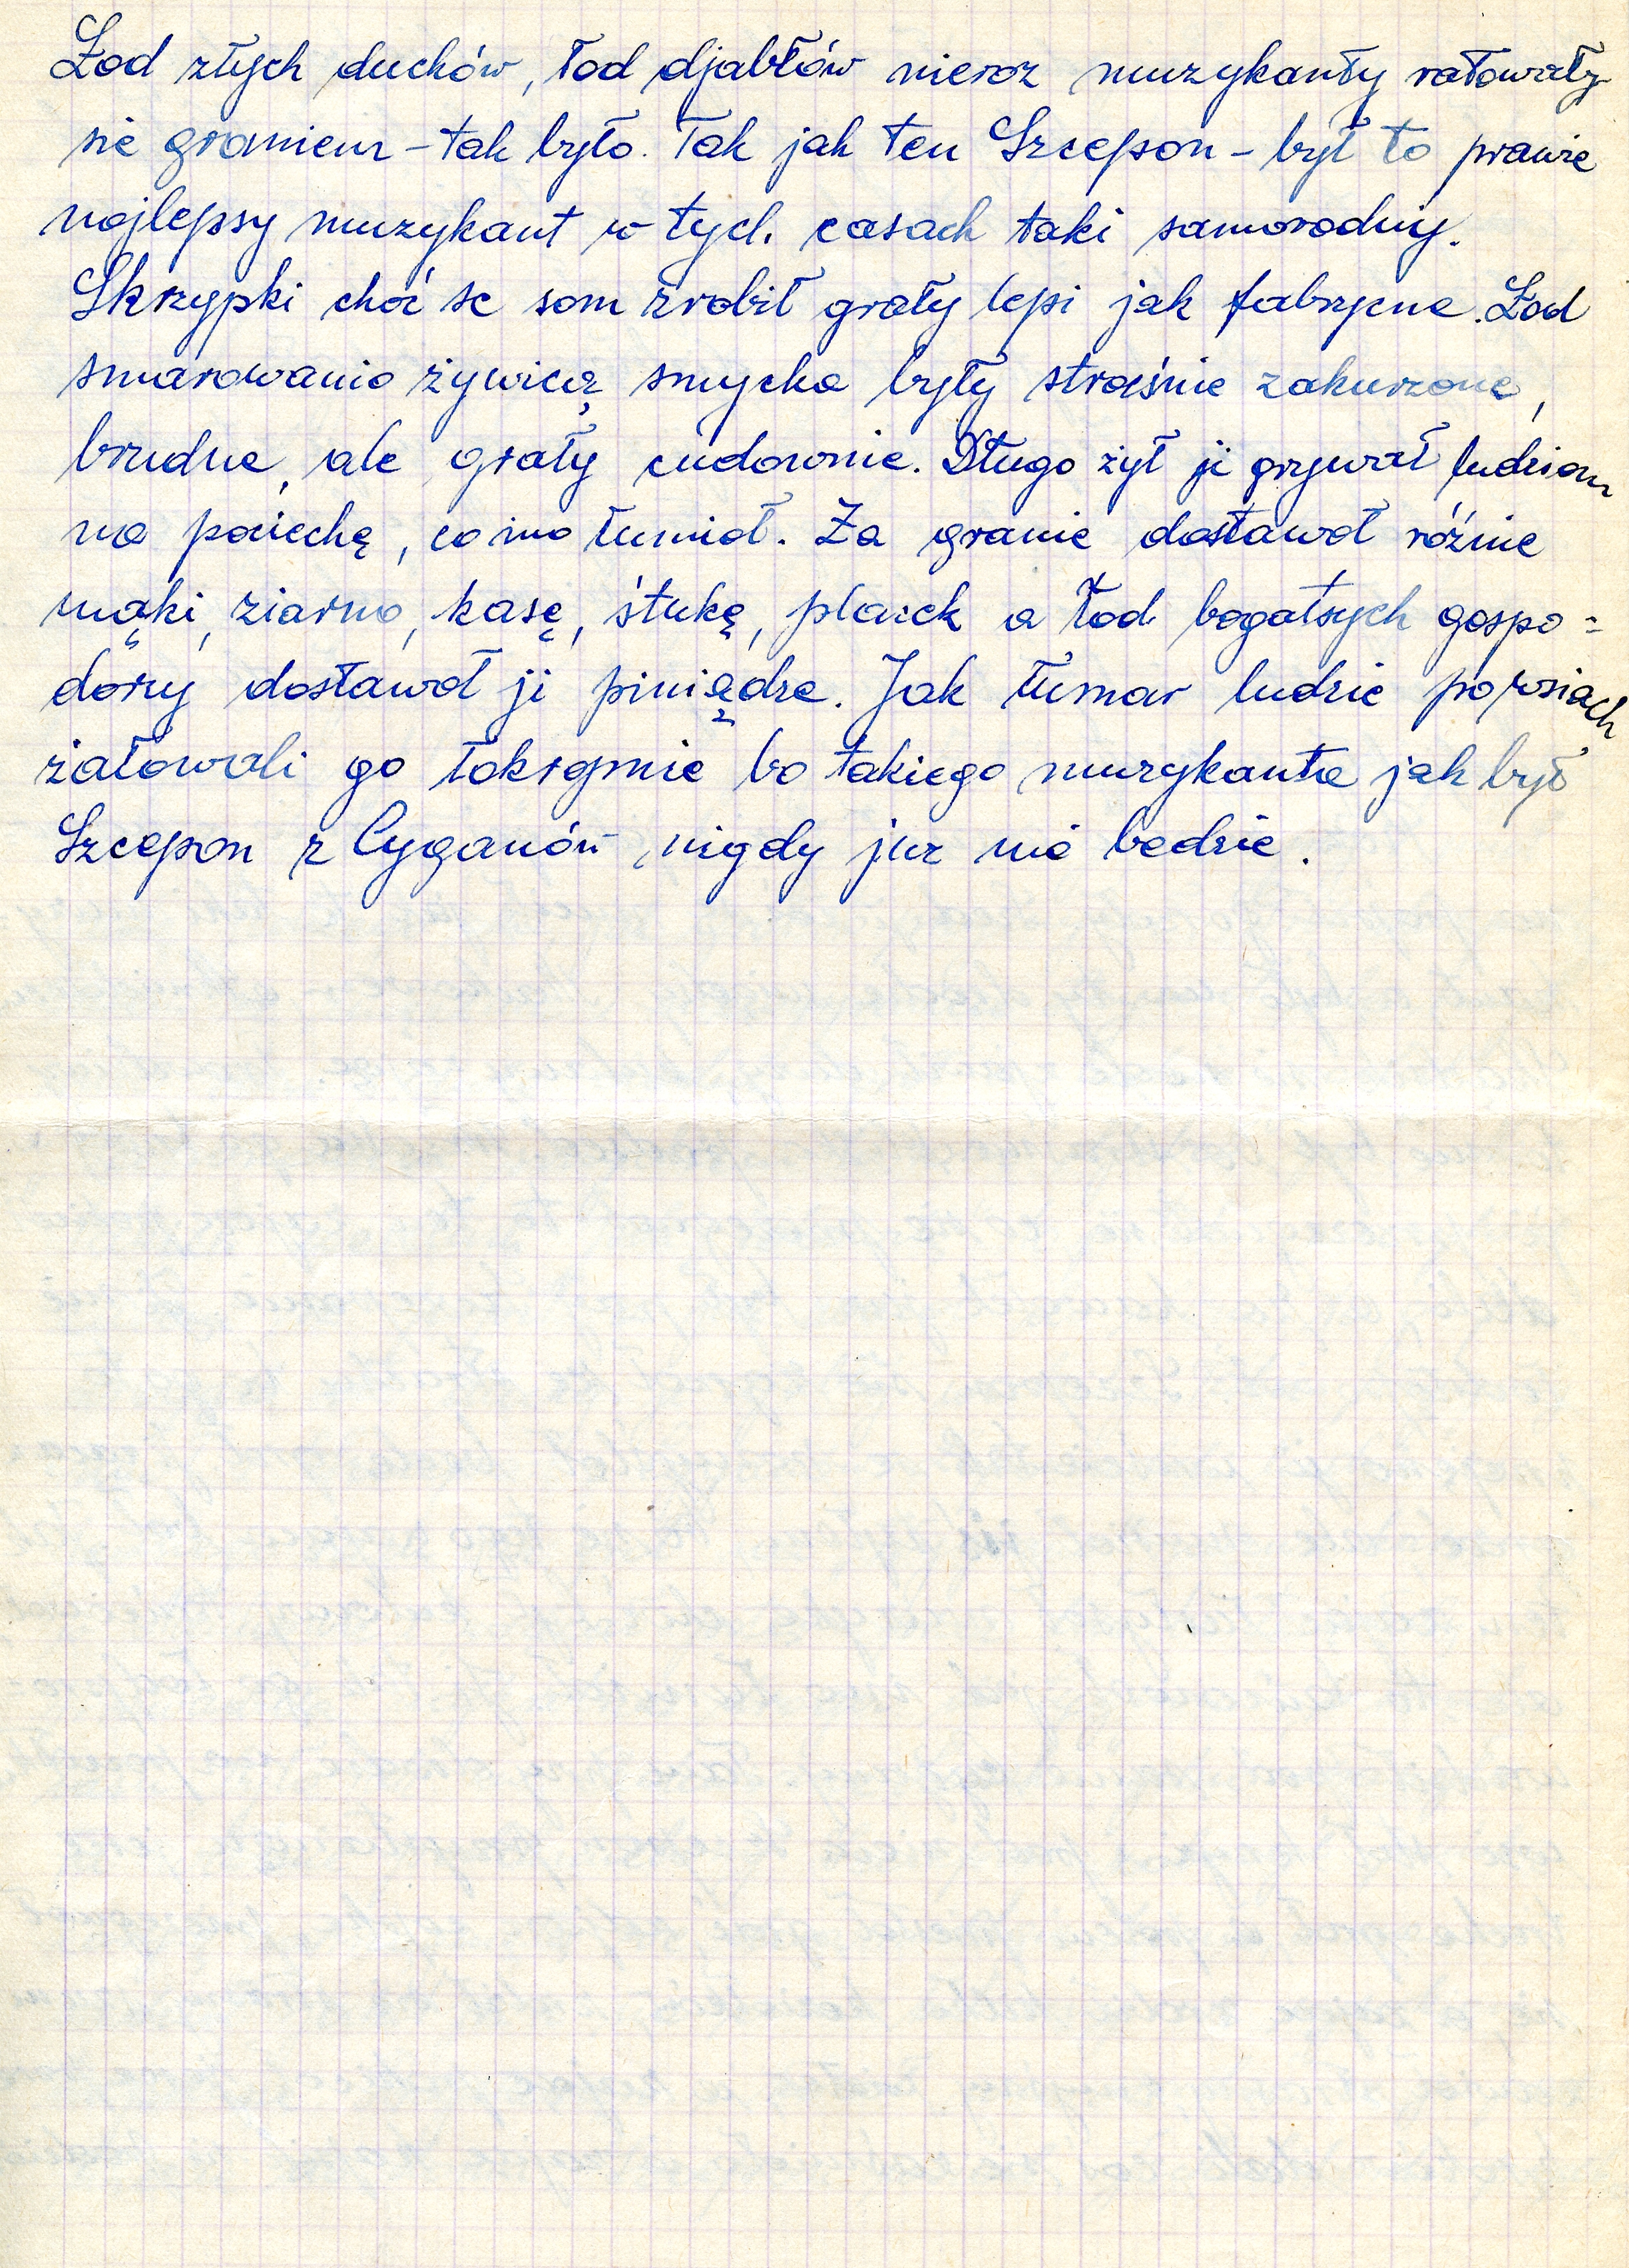 Łod złych duchów, łod djabłów nieroz muzykanty ratowały
sie graniem – tak było. Tak jak ten Szczepon – był to prawie
nojlepsy muzykant w tych casach taki samorodny.
Skrzypki choć se som zrobił grały lepi jak fabrycne. Łod
smarowanio żywicą smycka były straśnie zakurzone,
brudne, ale grały cudownie. Długo żył ji grywał ludziom
na pociechę, co ino łumioł. Za granie dostawoł różnie
mąki, ziarno, kasę, śtukę, placek a łod bogatsych gospo-
dorzy dostawoł ji piniądze. Jak łumar ludzie po wsiach
żałowali go łokropnie bo takiego muzykanta jak był
Szcepon z Cyganów nigdy juz nie bedzie.